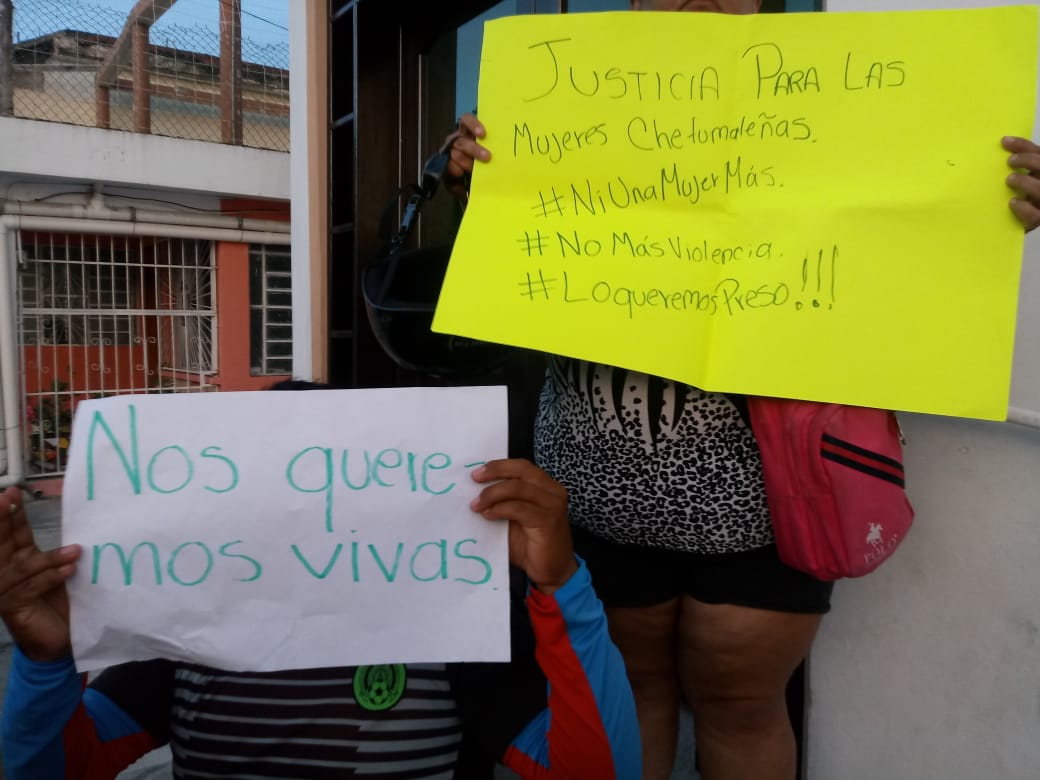 JUSTICIA PARA LAS
Mujeres Chetumaleñas.
#NiUnaMujerMás.
#NoMásViolencia.
#LoqueremosPreso!!!
Nos quere-
mos vivas.
POLO